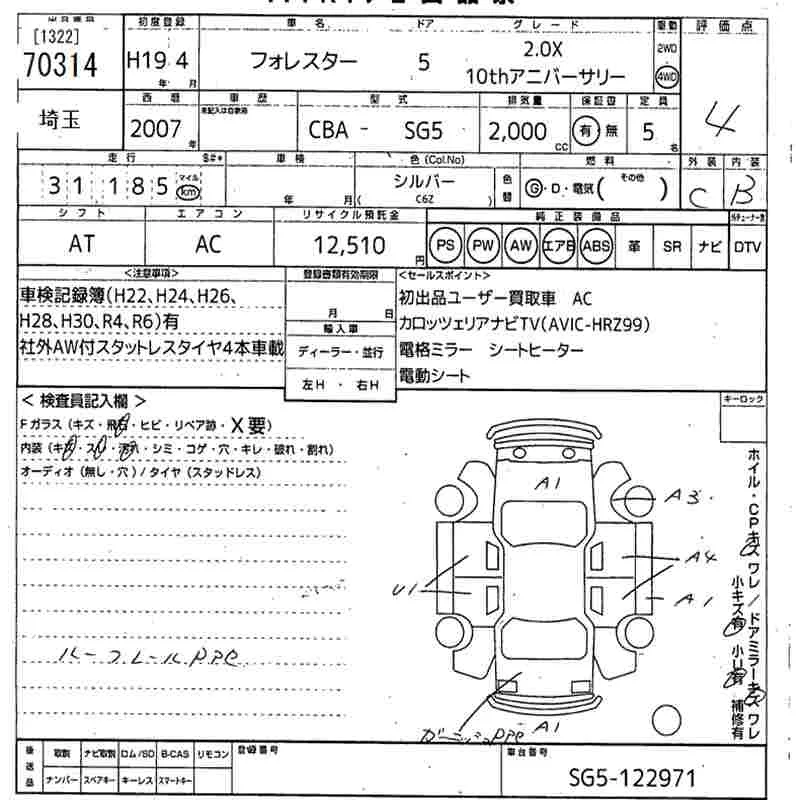 [1322]
70314
初度登録
H19 4
年 月
車名
フォレスター
ドア
5
グレード
2.0X
10thアニバーサリー
駆動
2WD
4WD
評価点
4
埼玉
西暦
2007
年
車歴
型式
CBA - SG5
排気量
2,000
CC
保証書
有 無
定員
5
名
走行
31,185
マイル
km
車検
年 月
色(Col.No)
シルバー
( C6Z )
色替
燃料
G・D・電気( その他 )
外装
C
内装
B
シフト
AT
エアコン
AC
リサイクル預託金
12,510
円
純正装備品
PS PW AW エアB ABS 革 SR ナビ DTV
<注意事項>
車検記録簿(H22、H24、H26、
H28、H30、R4、R6)有
社外AW付スタットレスタイヤ4本車載
登録書類有効期限
月 日
輸入車
ディーラー・並行
左H ・ 右H
<セールスポイント>
初出品ユーザー買取車 AC
カロッツェリアナビTV(AVIC-HRZ99)
電格ミラー シートヒーター
電動シート
キーロック
< 検査員記入欄 >
Fガラス (キズ・飛石・ヒビ・リペア跡・X要)
内装 (キズ・スレ・汚れ・シミ・コゲ・穴・キレ・破れ・割れ)
オーディオ (無し・穴) / タイヤ (スタッドレス)
A1
A3
A4
U1
A1
ルーフレールPPe
ガーニッシュPPe
A1
ホイル・CPキズ ワレ / ドアミラーキズ ワレ
小キズ有 小U有 補修有
後送品
取説 ナビ取説 ロム/SD B-CAS リモコン
ナンバー スペアキー キーレス スマートキー
登録番号
車台番号
SG5-122971